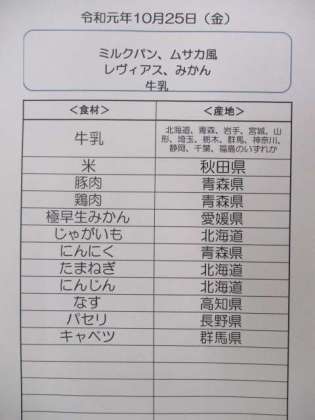 令和元年10月25日（金）
ミルクパン、ムサカ風
レヴィアス、みかん
牛乳
＜食材＞ ＜産地＞
牛乳 北海道、青森、岩手、宮城、山形、埼玉、栃木、群馬、神奈川、静岡、千葉、福島のいずれか
米 秋田県
豚肉 青森県
鶏肉 青森県
極早生みかん 愛媛県
じゃがいも 北海道
にんにく 青森県
たまねぎ 北海道
にんじん 北海道
なす 高知県
パセリ 長野県
キャベツ 群馬県